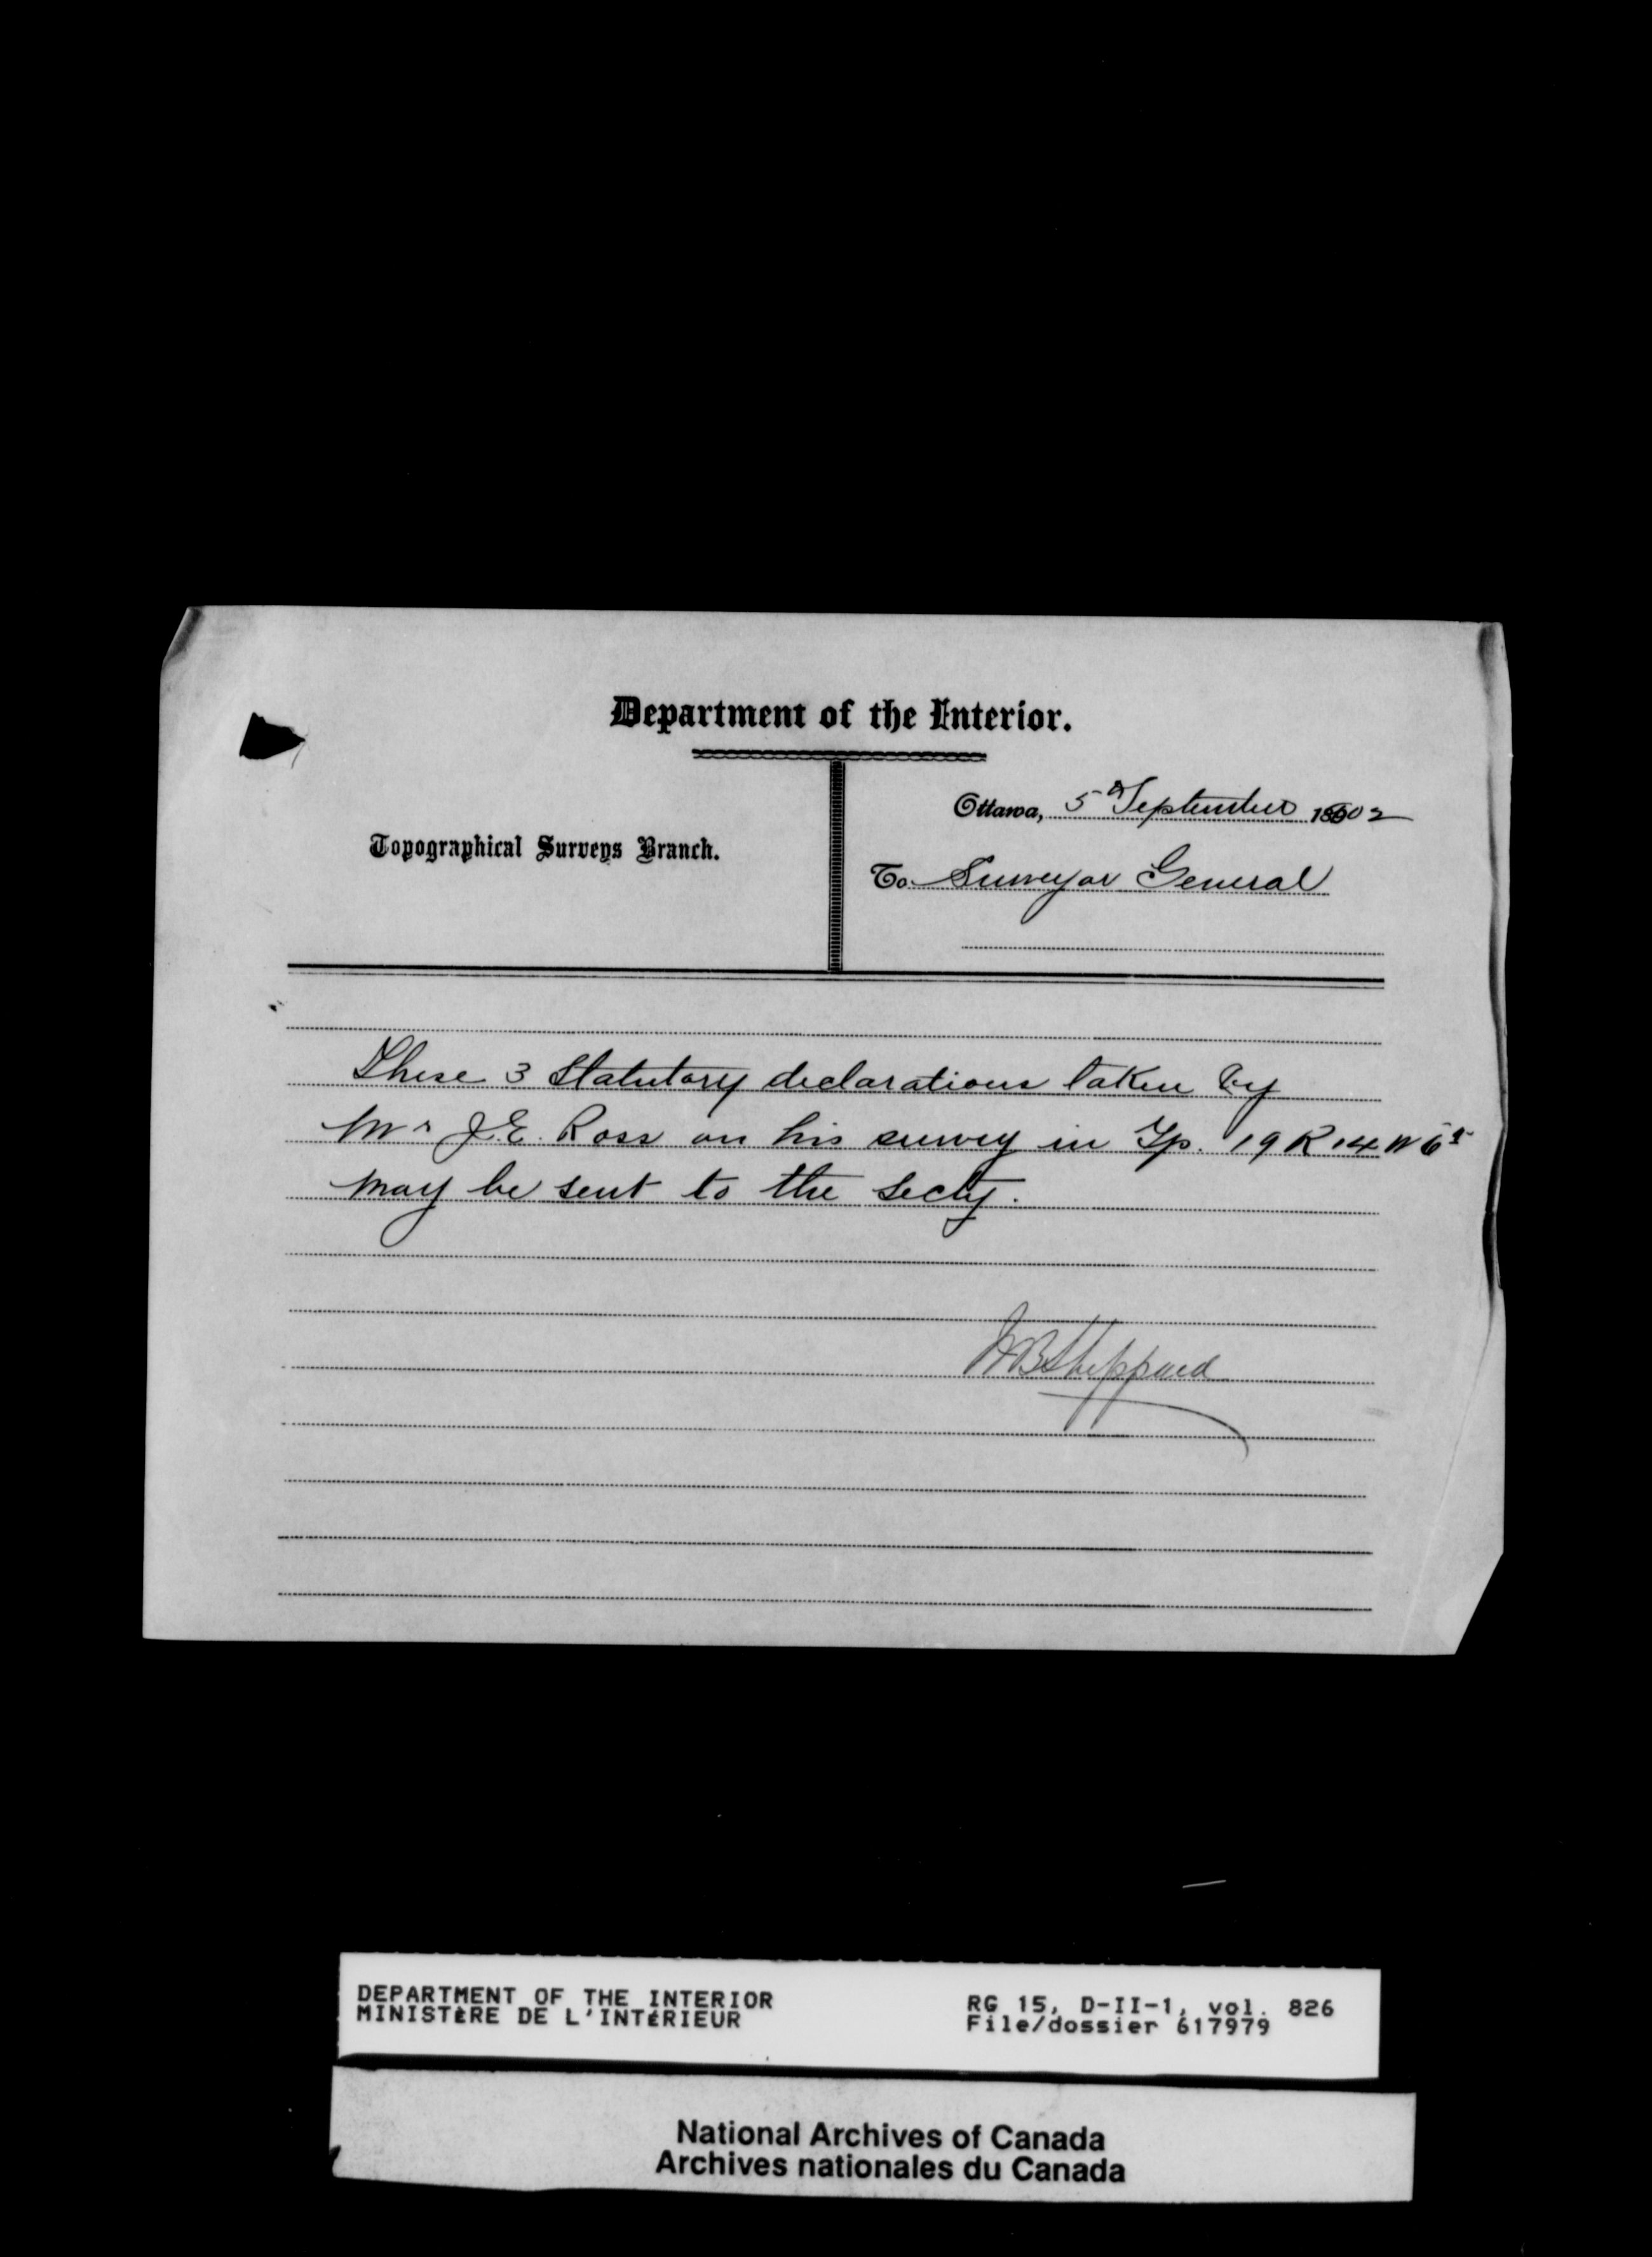 Department of the Interior.
Topographical Surveys Branch.
Ottawa, 5 September 1902
To Surveyor General
These 3 Statutory declarations taken by
Mr J.E. Ross on his survey in Tp. 19 R 14 W 6th
may be sent to the Secty.
Sheppard
DEPARTMENT OF THE INTERIOR
MINISTÈRE DE L'INTÉRIEUR
RG 15, D-II-1, vol. 826
File/dossier 617979
National Archives of Canada
Archives nationales du Canada